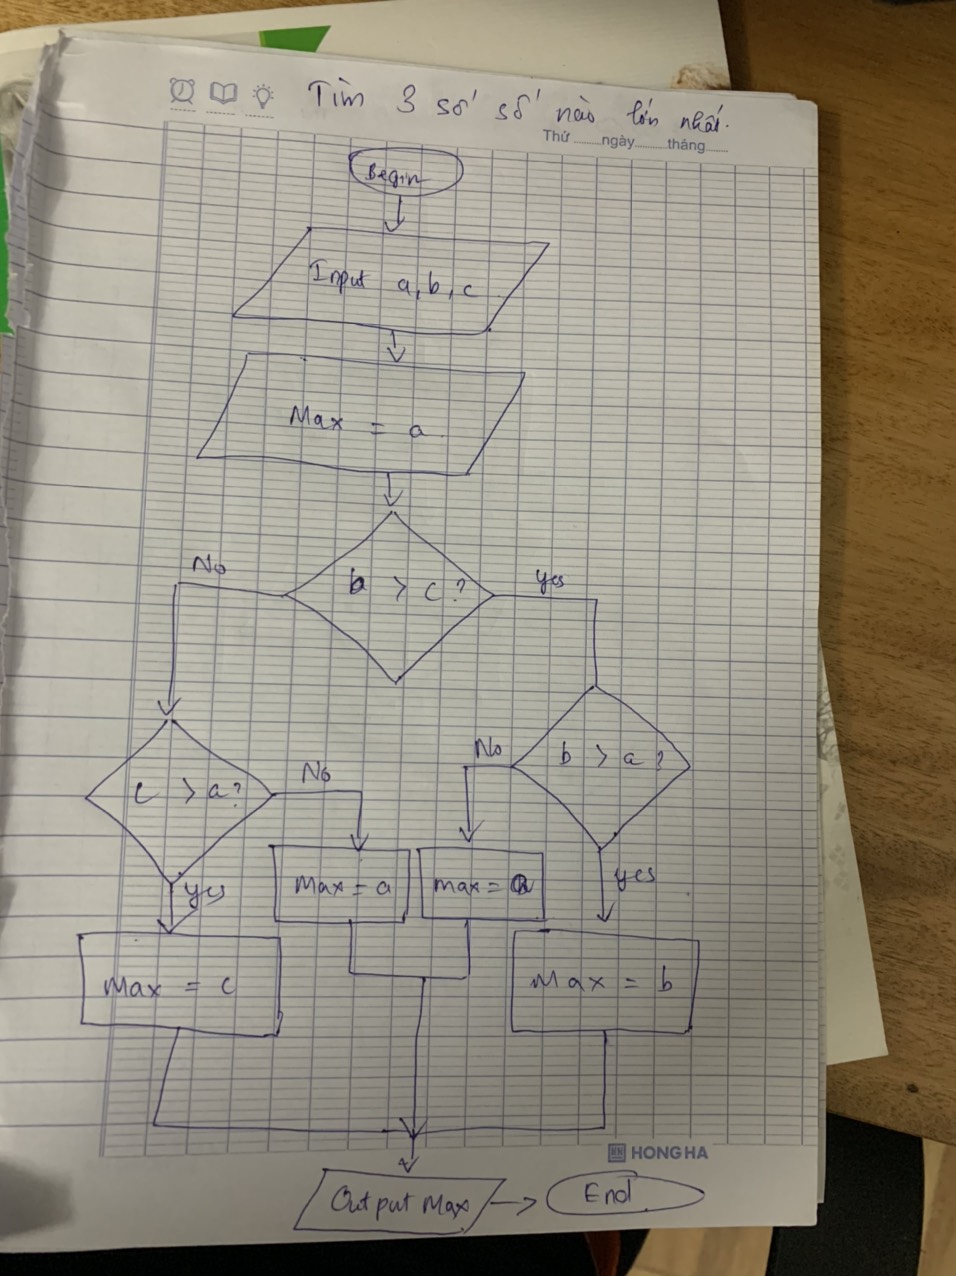 Tìm 3 số số nào lớn nhất.
Thứ ......ngày.......tháng.....
Begin
Input a, b, c
Max = a.
b > c ?
No
yes
b > a ?
No
c > a?
No
yes
Max = a
max = a
yes
Max = c
Max = b
HONG HA
Output Max
End